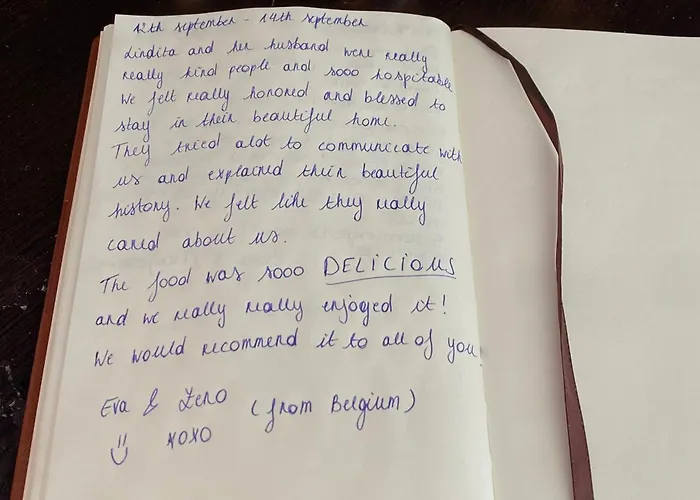 12th september - 14th september
Lindita and her husband were really
really kind people and sooo hospitable
We felt really honored and blessed to
stay in their beautiful home.
They tried alot to communicate with
us and explained their beautiful
history. We felt like they really
cared about us.
The food was sooo DELICIOUS
and we really really enjoyed it!
We would recommend it to all of you!
Eva & Zeno (from Belgium)
XOXO